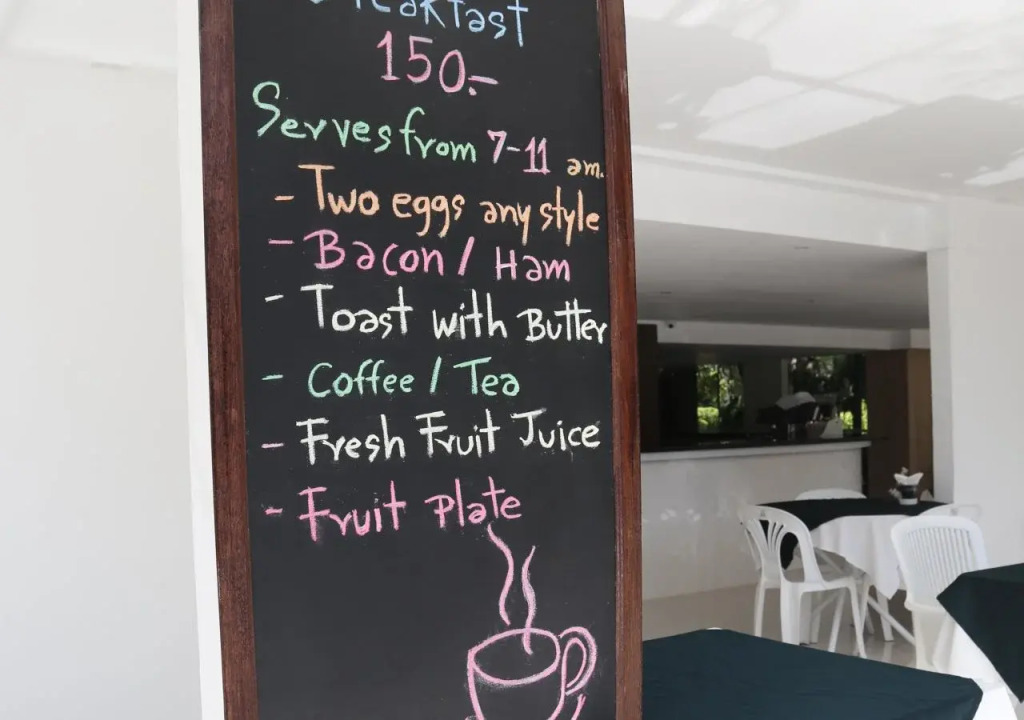 Breakfast
150.-
Serves from 7-11 am.
- Two eggs any style
- Bacon / Ham
- Toast with Butter
- Coffee / Tea
- Fresh Fruit Juice
- Fruit Plate